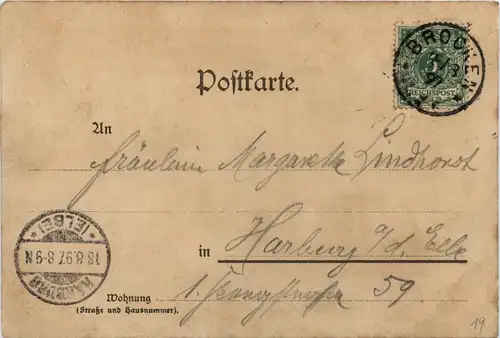 BROCKEN
5
REICHSPOST
Postkarte.
An
Fräulein Margarethe Lindhorst
in Harburg a/d. Elbe
HARBURG
18.8.97 8-9N
* (ELBE) *
Wohnung
(Straße und Hausnummer).
1. 59
19